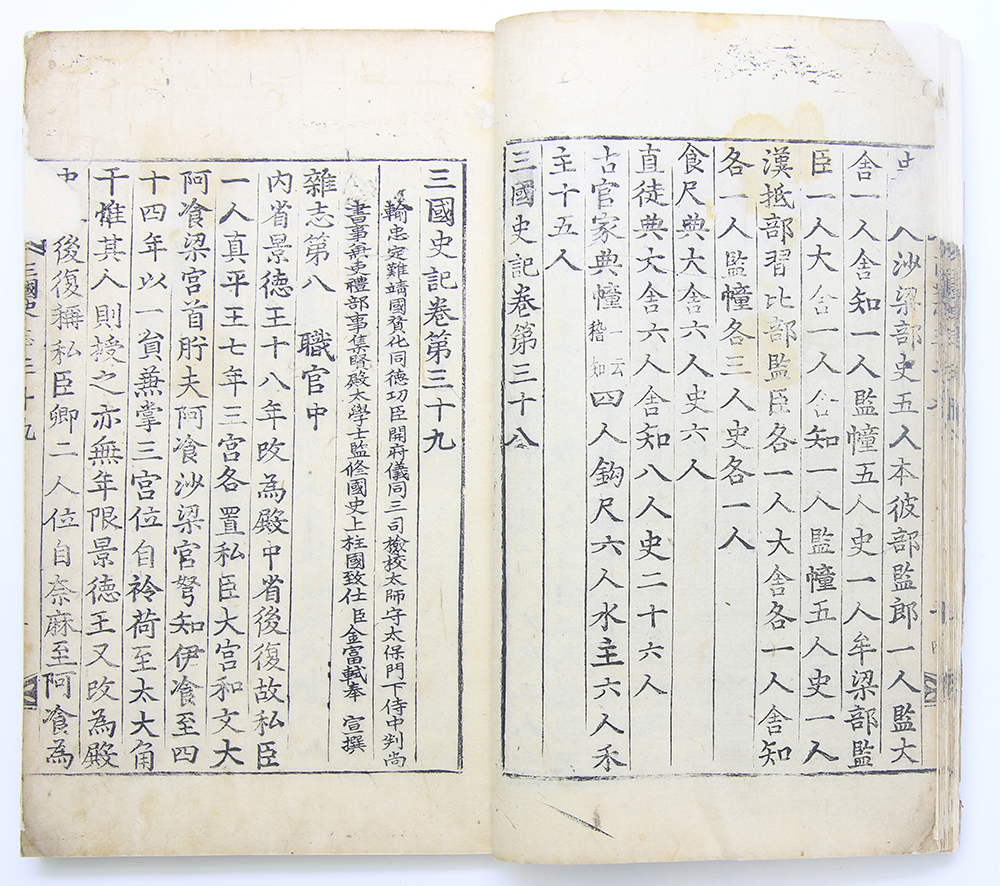 人沙梁部史五人本彼部監郎一人監大
舍一人舍知一人監幢五人史一人牟梁部監
臣一人大舍一人舍知一人監幢五人史一人
漢抵部習比部監臣各一人大舍各一人舍知
各一人監幢各三人史各一人
食尺典大舍六人史六人
直徒典大舍六人舍知八人史二十六人
古官家典幢一云𥡴知四人鉤尺六人水主六人禾
主十五人
三國史記卷第三十八
三國史記卷第三十九
輸忠定難靖國贊化同德功臣開府儀同三司檢校太師守太保門下侍中判尚
書事兼吏禮部事集賢殿太學士監修國史上柱國致仕臣金富軾奉 宣撰
雜志第八 職官中
內省景德王十八年改為殿中省後復故私臣
一人真平王七年三宮各置私臣大宮和文大
阿飡梁宮首肹夫阿飡沙梁宮弩知伊飡至四
十四年以一貟兼掌三宮位自衿荷至太大角
干惟其人則授之亦無年限景德王又改為殿
中 後復稱私臣卿二人位自奈麻至阿飡為